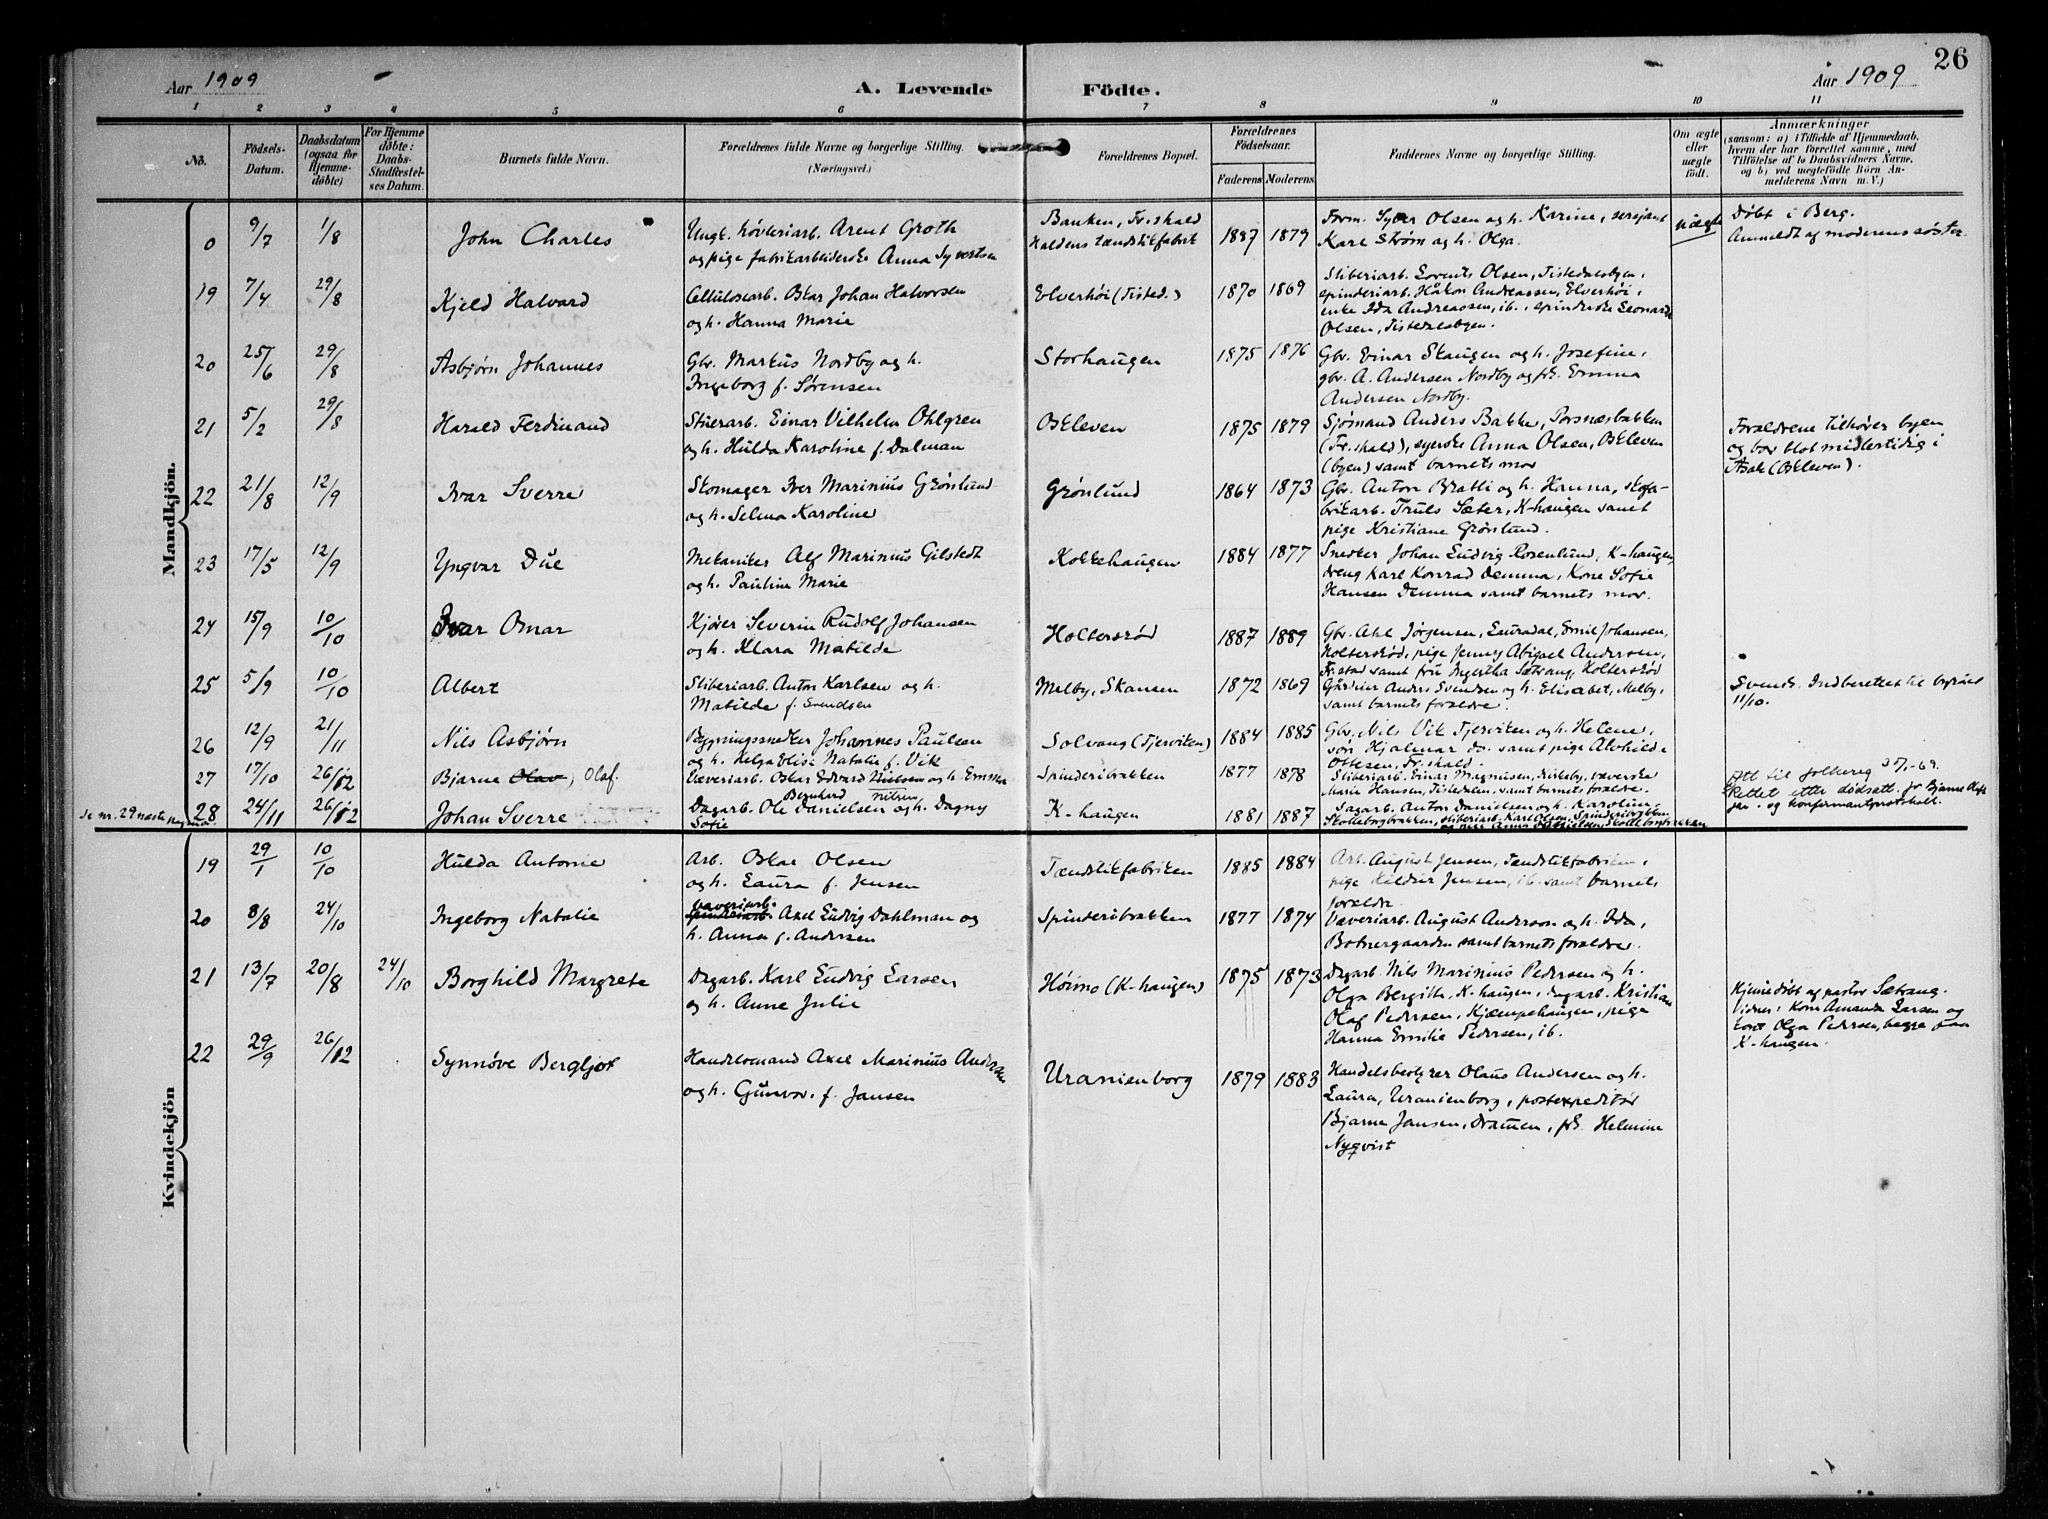 26
Aar 1909
A. Levende Födte.
Aar 1909
1 2 3 4 5 6 7 8 9 10 11
No.
Födsels-Datum.
Daabsdatum (ogsaa for Hjemme-døbte)
For Hjemme døbte: Daabs-Stadfæstel-ses Datum.
Barnets fulde Navn.
Forældrenes fulde Navne og borgerlige Stilling.
(Næringsvei.)
Forældrenes Bopæl.
Forældrenes Fødselsaar.
Faderens Moderens
Faddernes Navne og borgerlige Stilling.
Om ægte eller uægte født.
Anmærkninger
(saasom: a) i Tilfælde af Hjemmedaab,
hvem der har forrettet samme, med
Tilföielse af to Daabsvidners Navne,
og b) ved uægtefödte Börn An-
melderens Navn m. V.)
Mandkjön.
0 9/7 1/8 John Charles
Ungk. høvleriarb. Arent Groth
og pige fabrikarbeiderske Anna Syvertsen
Banken, Fr.shald
Haldens tændstikfabrik
1887 1879
Form. Syver Olsen og h. Karine, sersjant
Karl Strøm og h. Olga.
uægte
Døbt i Berg.
Anmeldt af moderens søster.
19 7/4 29/8 Kjeld Halvard
Cellulosearb. Oskar Johan Halvorsen
og h. Hanna Marie
Elverhøi (Tisted.)
1870 1869
Sliberiarb. Lorents Olsen, Tistedalsbyen,
spinderiarb. Håkon Andreassen, Elverhøi,
enke Ida Andreassen, ib., spinderske Leonarda
Olsen, Tistedalsbyen.
20 25/6 29/8 Asbjørn Johannes
Gbr. Markus Nordby og h.
Ingeborg f. Sørensen
Storhaugen
1875 1876
Gbr. Einar Skaugen og h. Josefine,
gbr. A. Andersen Nordby og frk. Emma
Andersen Nordby.
21 5/2 29/8 Harald Ferdinand
Stuerarb. Einar Vilhelm Ohlgren
og h. Hulda Karoline f. Dalman
Oskleven
1875 1879
Sjømand Anders Bakke, Torsnesbakken
(Fr.shald), syerske Anna Olsen, Oskleven
(byen) samt barnets mor
Forældrene tilhører byen
og bor blot midlertidig i
Asak (Oskleven).
22 21/8 12/9 Ivar Sverre
Skomager Iver Marinius Grønlund
og h. Selma Karoline
Grønlund
1864 1873
Gbr. Anton Bratli og h. Hanna, skofa-
brikarb. Truls Sæter, K-haugen samt
pige Kristiane Grønlund.
23 17/5 12/9 Yngvar Due
Mekaniker Alf Marinius Gilstedt
og h. Pauline Marie
Kokkehaugen
1884 1877
Snedker Johan Ludvig Rosenlund, K-haugen,
dreng Karl Konrad Demma, Kone Sofie
Hansen Demma samt barnets mor.
24 15/9 10/10 Ivar Omar
Kjører Severin Rudolf Johansen
og h. Klara Matilde
Holterskød
1887 1889
Gbr. Axel Jørgensen, Lauradal, Emil Johansen,
Holterskød, pige Jenny Abigael Andersen,
Fr.stad samt fru Ingertha Sætrang, Holterskød
25 5/9 10/10 Albert
Sliberiarb. Anton Karlsen og h.
Matilde f. Svendsen
Melby, Skansen
1872 1869
Gårdeier Anders Svendsen og h. Elisabet, Melby,
samt barnets forældre.
Svends. Indberettet til byråel
11/10.
26 12/9 21/11 Nils Asbjørn
Bygningssnedker Johannes Paulsen
og h. Helga Elise Natalie f. Vik
Solvang (Tjerviken)
1884 1885
Gbr. Nils Vik Tjerviken og h. Helene,
søn Hjalmar ds. samt pige Alvhilde
Ottesen, Fr.shald.
27 17/10 26/12 Bjarne Olav, Olaf.
Væveriarb. Oskar Edvard Nielsen og h. Emma
Nilsen
Spinderibrakken
1877 1878
Sliberiarb. Einar Magnussen, Kirkeby, væverske
Marie Hansen, Tistedalen, samt barnets forældre.
Rettet etter dødsatt.
og konfirmantprotokoll.
se nr. 29 næste
28 24/11 26/12 Johan Sverre
Dagarb. Ole Bernhard Danielsen og h. Dagny
Sofie
K-haugen
1881 1887
Sagarb. Anton Danielsen og h. Karoline,
Skolleborgbrakken, sliberiarb. Karl Olsen, Spinderibrakken
og pige Anna Danielsen, Skolleborgbrakken
Kvindekjön
19 29/1 10/10 Hulda Antonie
Arb. Oskar Olsen
og h. Laura f. Jensen
Tændstikfabriken
1885 1884
Arb. August Jensen, Tændstikfabriken,
pige Hildur Jensen, ib. samt barnets
forældre
20 8/8 24/10 Ingeborg Natalie
væveriarb.
Spinderiarb. Axel Ludvig Dahlman og
h. Anna f. Andersen
Spinderibrakken
1877 1874
Væveriarb. August Anderson og h. Ida,
Botnergaarden samt barnets forældre.
21 13/7 20/8 24/10 Borghild Margrete
Dagarb. Karl Ludvig Larsen
og h. Anne Julie
Høimo (K-haugen)
1875 1873
Dagarb. Nils Marinius Pedersen og h.
Olga Bergitte, K-haugen, dagarb. Kristian
Olaf Pedersen, Kjæmpehaugen, pige
Hanna Emilie Pedersen, ib.
Hjemmedøbt af pastor Sætrang.
Vidner: Kone Amanda Larsen og
kone Olga Pedersen, begge paa
K-haugen.
22 29/9 26/12 Synnøve Bergljot
Handlesmand Axel Marinius Andersen
og h. Gunvor f. Jansen
Uranienborg
1879 1883
Handelsbestyrer Olaus Andersen og h.
Laura, Uranienborg, postexpeditør
Bjarne Jansen, Dramen, frk. Helmine
Nyqvist